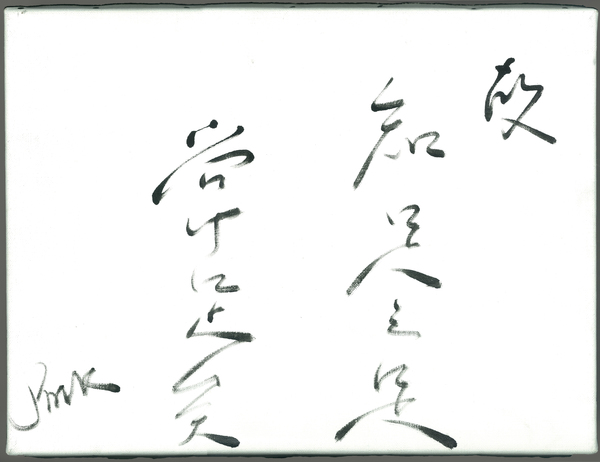 故
知足之足
常足矣